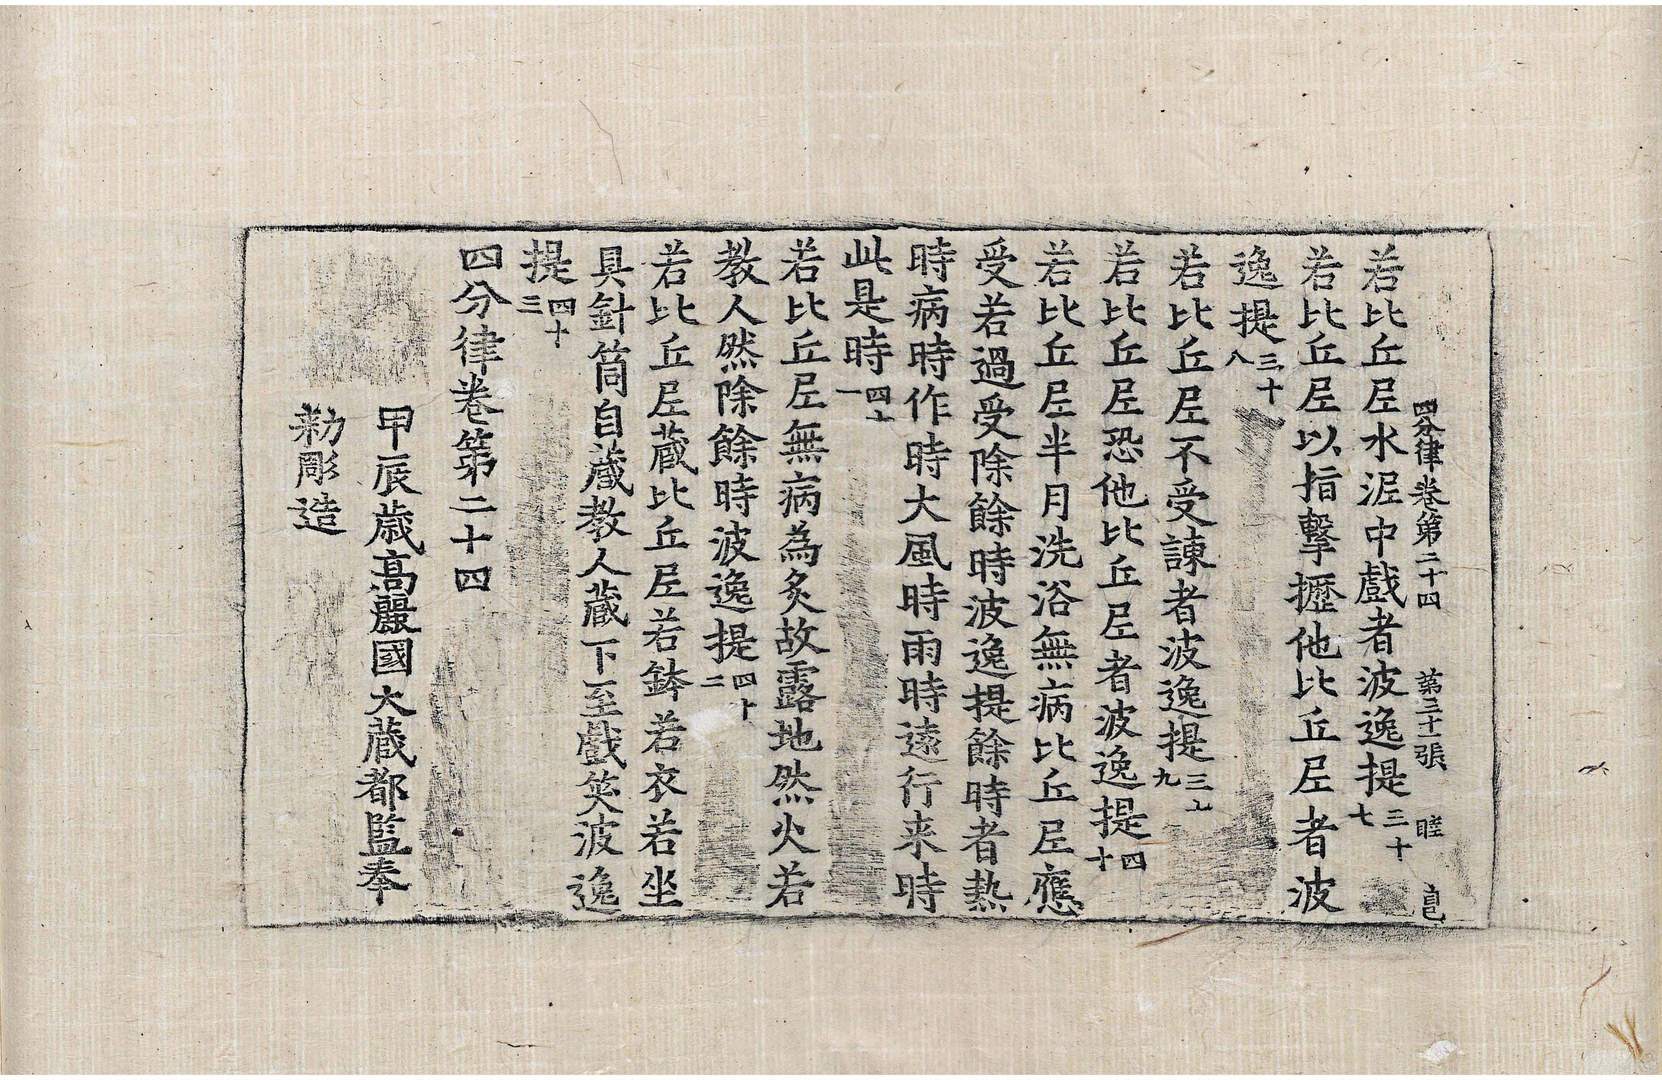 四分律卷第二十四 第三十一張 睦
若比丘尼水泥中戲者波逸提三十七
若比丘尼以指擊攊他比丘尼者波
逸提三十八
若比丘尼不受諫者波逸提三九
若比丘尼恐他比丘尼者波逸提四十
若比丘尼半月洗浴無病比丘尼應
受若過受除餘時波逸提餘時者熱
時病時作時大風時雨時遠行来時
此是時四十一
若比丘尼無病為炙故露地然火若
教人然除餘時波逸提四十二
若比丘尼蔵比丘尼若鉢若衣若坐
具針筒自蔵教人蔵下至戲笑波逸
提四十三
四分律卷第二十四
甲辰歲高麗國大蔵都監奉
勑彫造